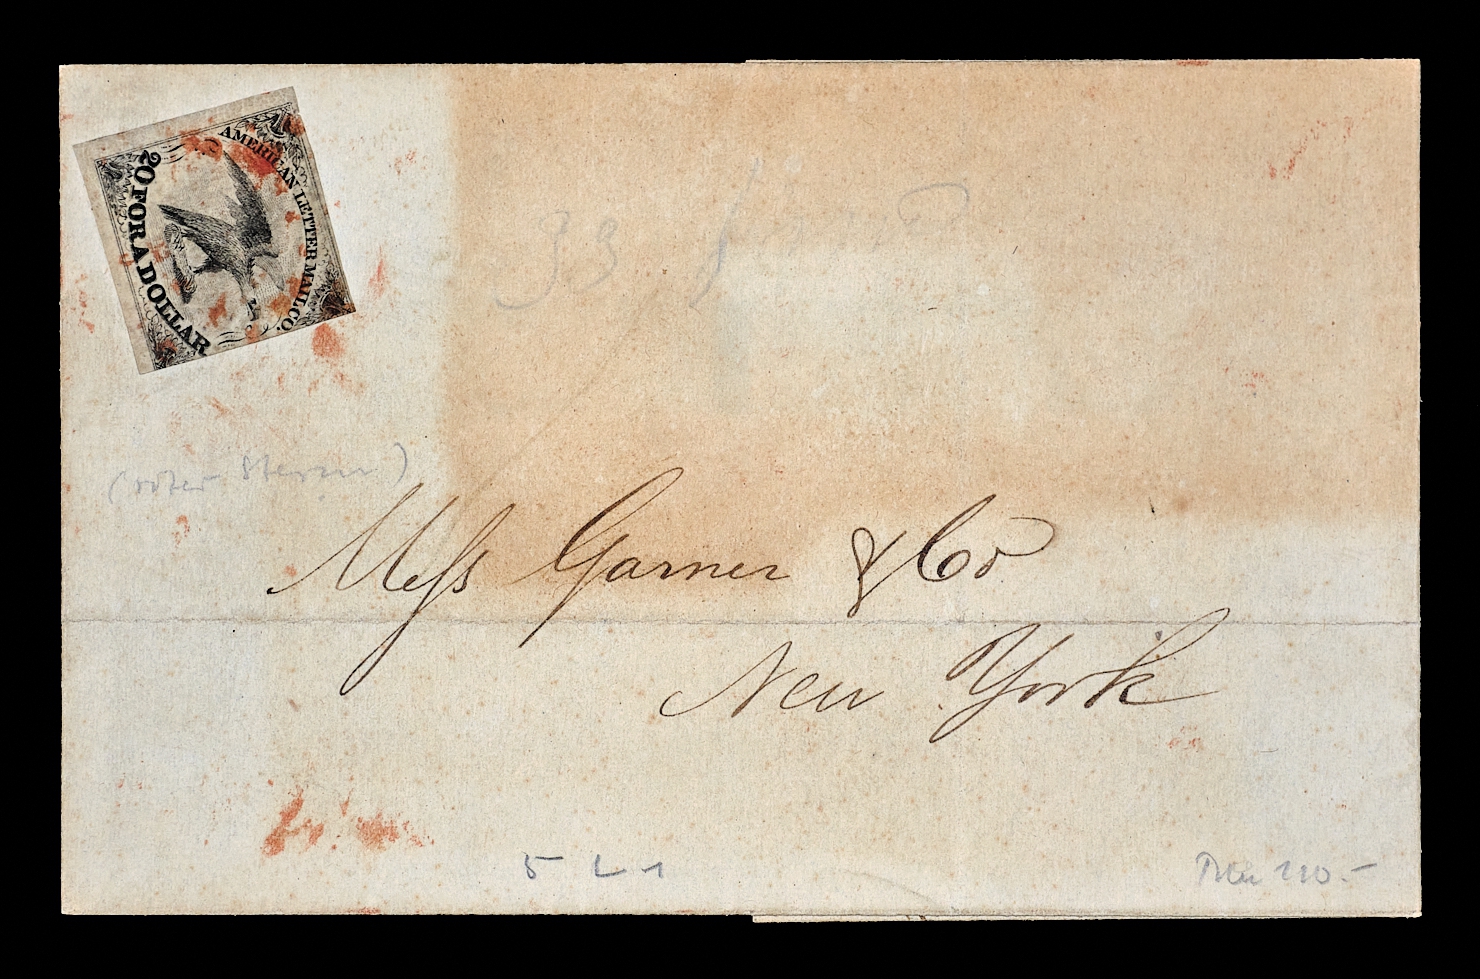 AMERICAN LETTER MAIL CO.
20 FOR A DOLLAR
33
(roter
Messs Garner & Co
New York
5 L 1